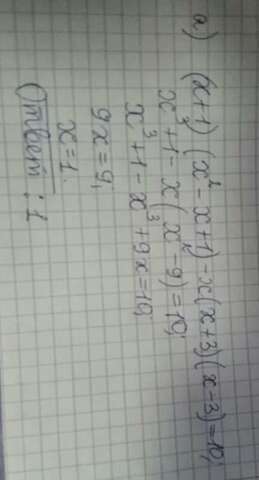 a) (x+1) (x²-x+1)-x(x+3)(x-3)=10;
x³+1-x(x²-9)=10;
x³+1-x³+9x=10;
9x=9;
x=1.
Ответ: 1